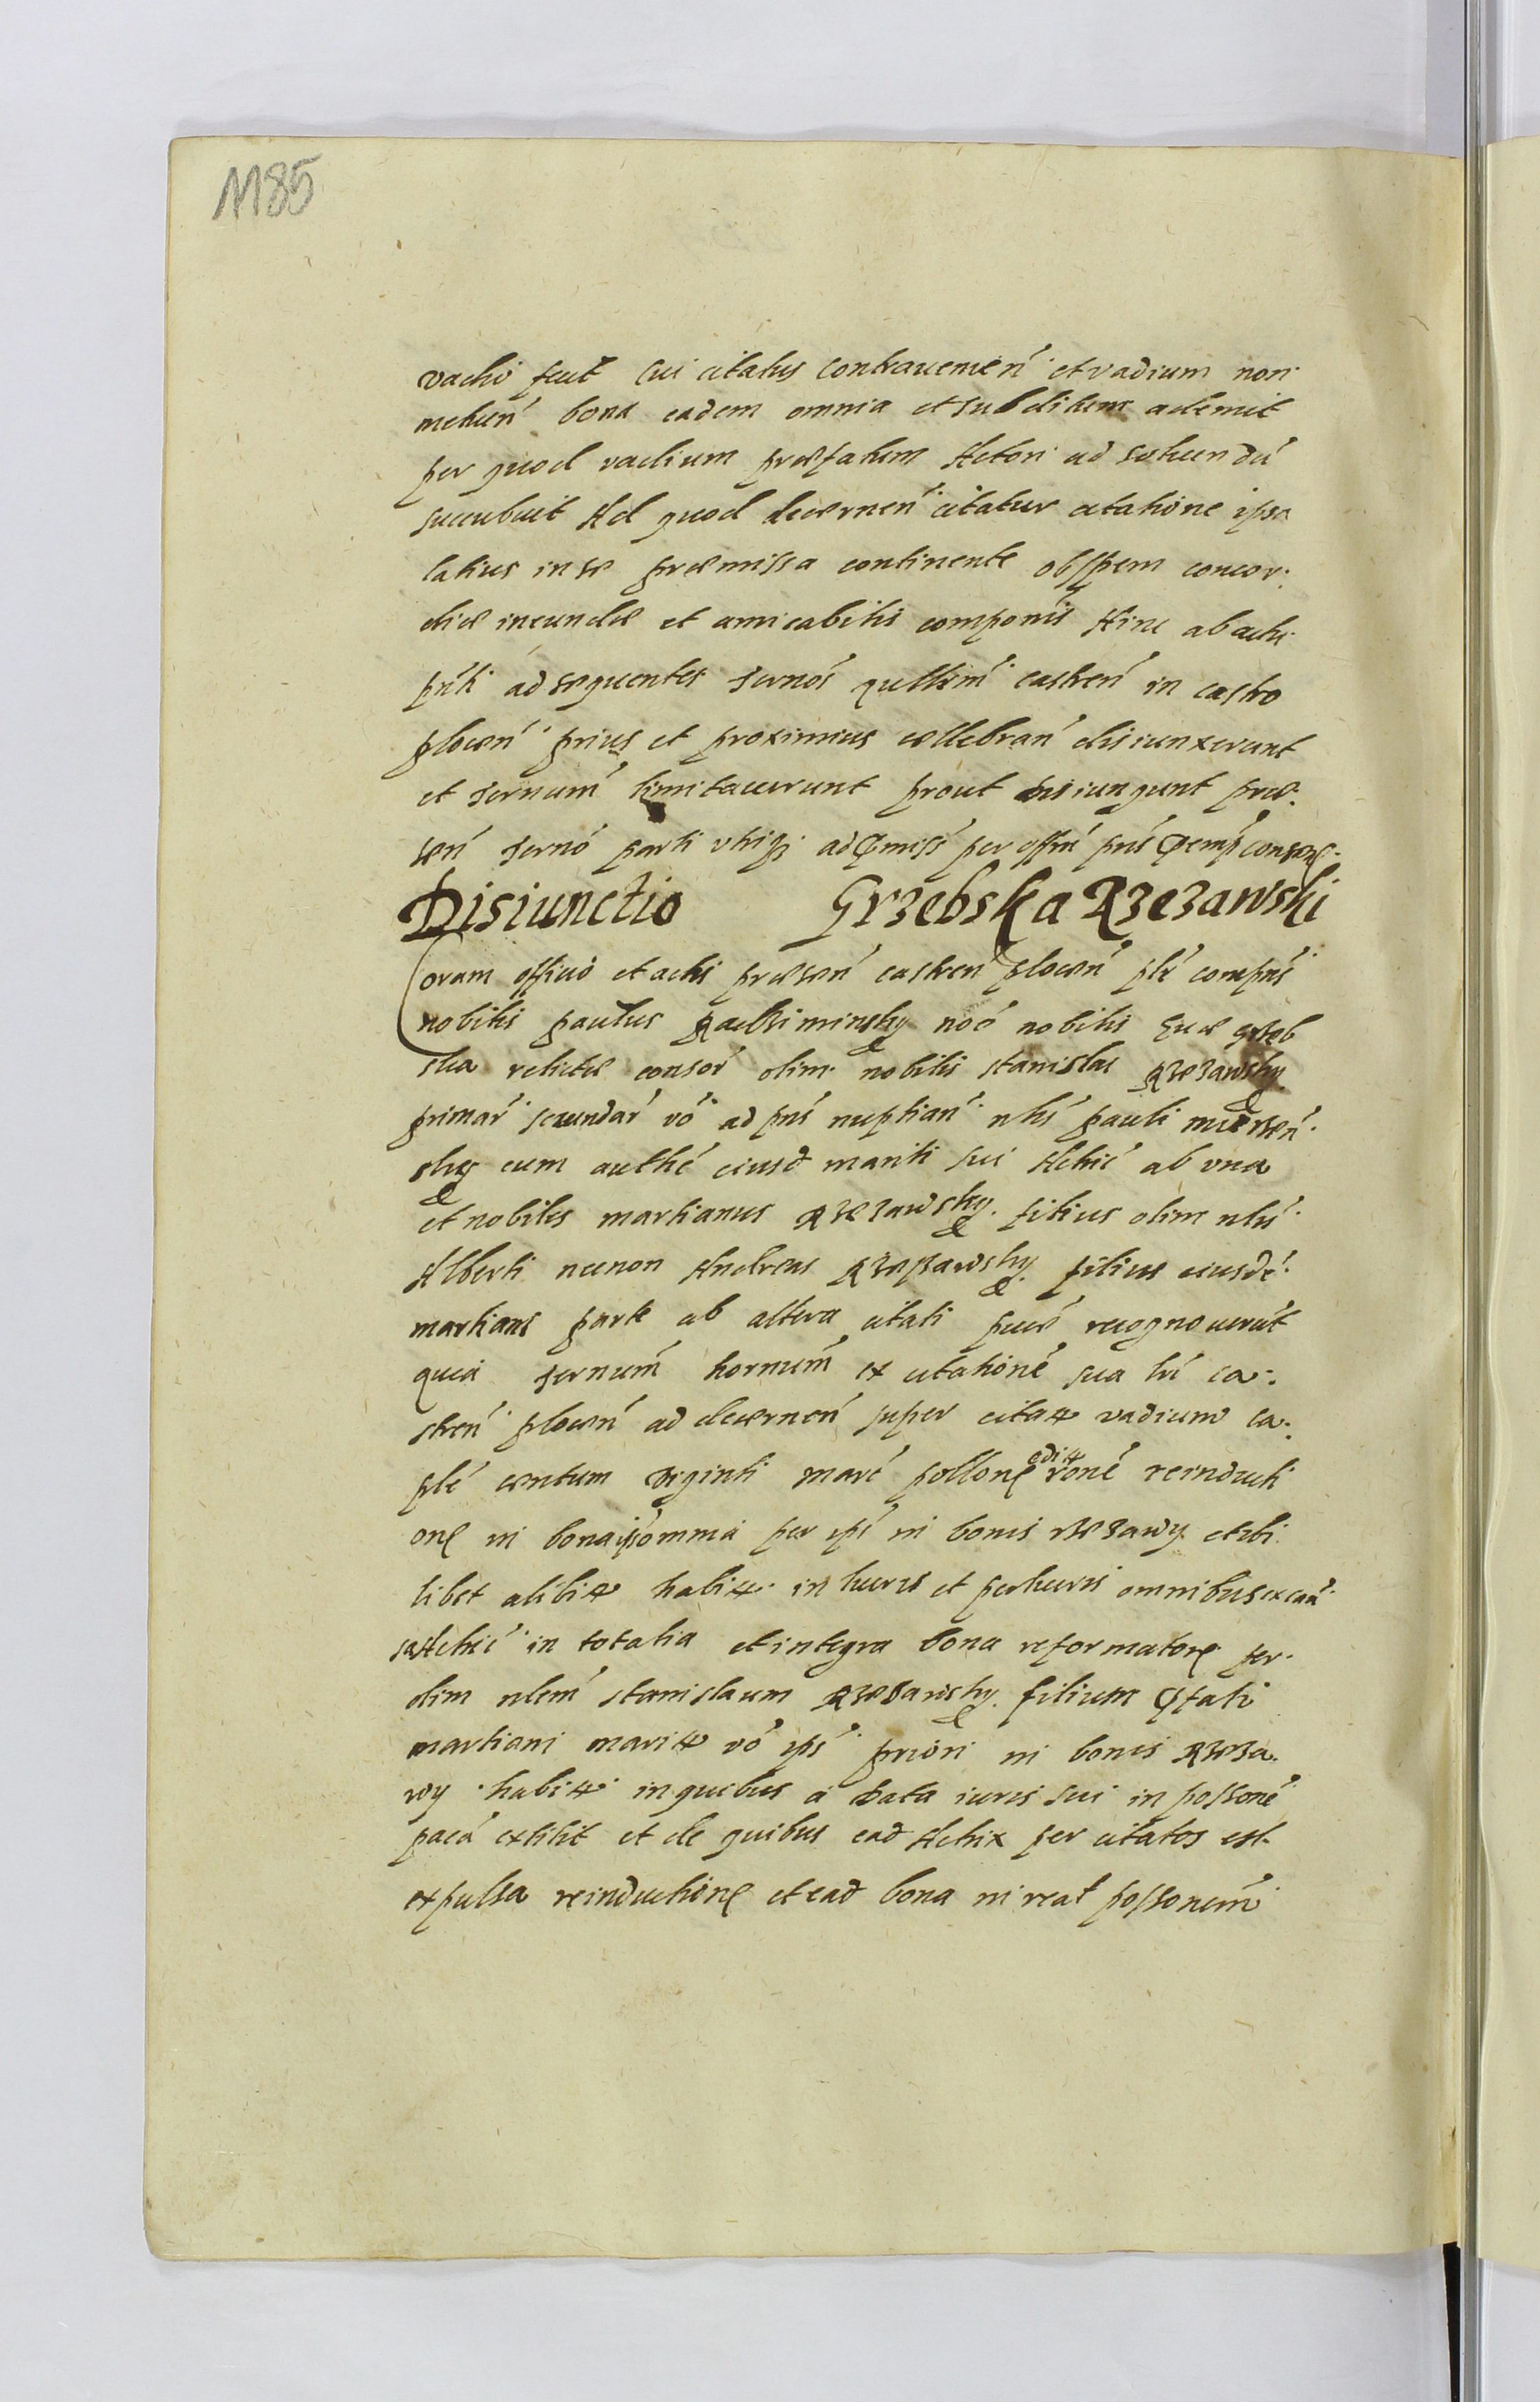 1185
vadio fecit Cui citatus contravenien̄ et vadium non
metuen̄ bona eadem omnia et subditum ademit
per quod vadium præfatum Actori ad solvendū
succubuit Ad quod decernen̄ citatur citatione ipsa
latius in se præmissa continente ob spem concor:
diæ ineundæ et amicabilis componis̄ Hinc ab actu
pn̄ti ad sequentes termōs quǣ castren̄ in castro
plocen̄ prius et proximius cellebran̄ disiunxerunt
et termum̄ limitaverunt prout disiungunt præ:
sen̄ termō parti utriqꝫ
Disiunctio Grzebska Rzezawski
Coram officio et actis præsen̄ castren̄ plocen̄ plr̄ compns̄
nobilis paulus Radziminsky noē nobilis Evæ Grzeb
ska relictæ consor̄ olim nobilis Stanislai Rzezawsky
primar̄ secundar̄ vō ad pns̄ nuptiarū nlis̄ pauli
sky cum auth̄e eiusd mariti sui Actric̄ ab una
et nobiles martianus Rzezawsky filius olim nlis̄
Alberti necnon Andreas Rzezawsky filius eiusdē
martiani parte ab altera citati recognoverūt
quia termum̄ hornum̄ ex citationē sua lrī ca:
stren̄ plocen̄ ad decernen̄ super citat vadium ca:
plē centum viginti marc̄ pollone edit ronē reinducti
one in bona omnia per ips̄ in bonis Rzezawy et ubi
libet alibi habit in lucris et perlucris omnibus ex cau
sa Actric̄ in totalia et integra bona reformatore per
olim nlem̄ Stanislaum Rzezawsky filium pfati
martiani marit vō ips̄ priori in bonis Rzeza
wy habit in quibus a data iuris sui in possonē
paca extitit et de quibus ead Actrix per citatos est
expulsa reinductione et ead bona in real possonem̄